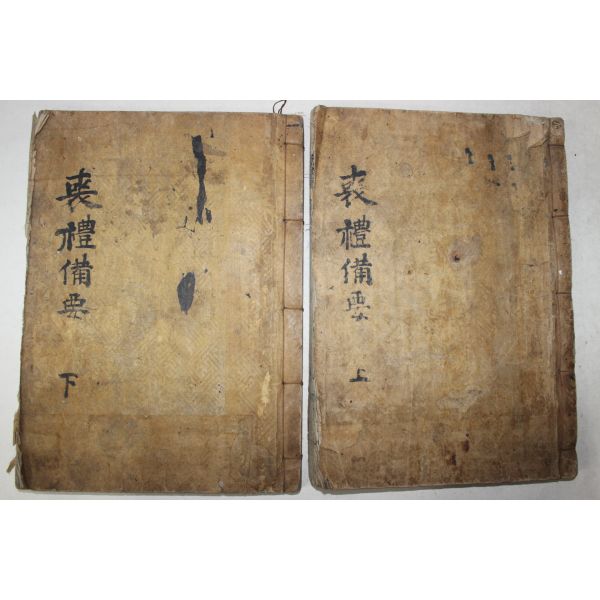 喪禮備要
下
喪禮備要
上